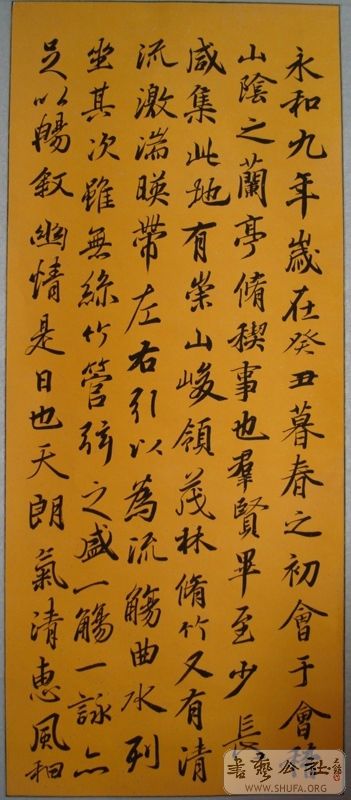 永和九年歲在癸丑暮春之初會于會稽
山陰之蘭亭脩稧事也羣賢畢至少長
咸集此地有崇山峻領茂林脩竹又有清
流激湍暎帶左右引以為流觴曲水列
坐其次雖無絲竹管弦之盛一觴一詠亦
足以暢敘幽情是日也天朗氣清惠風和
書藝公社
WWW.SHUFA.ORG